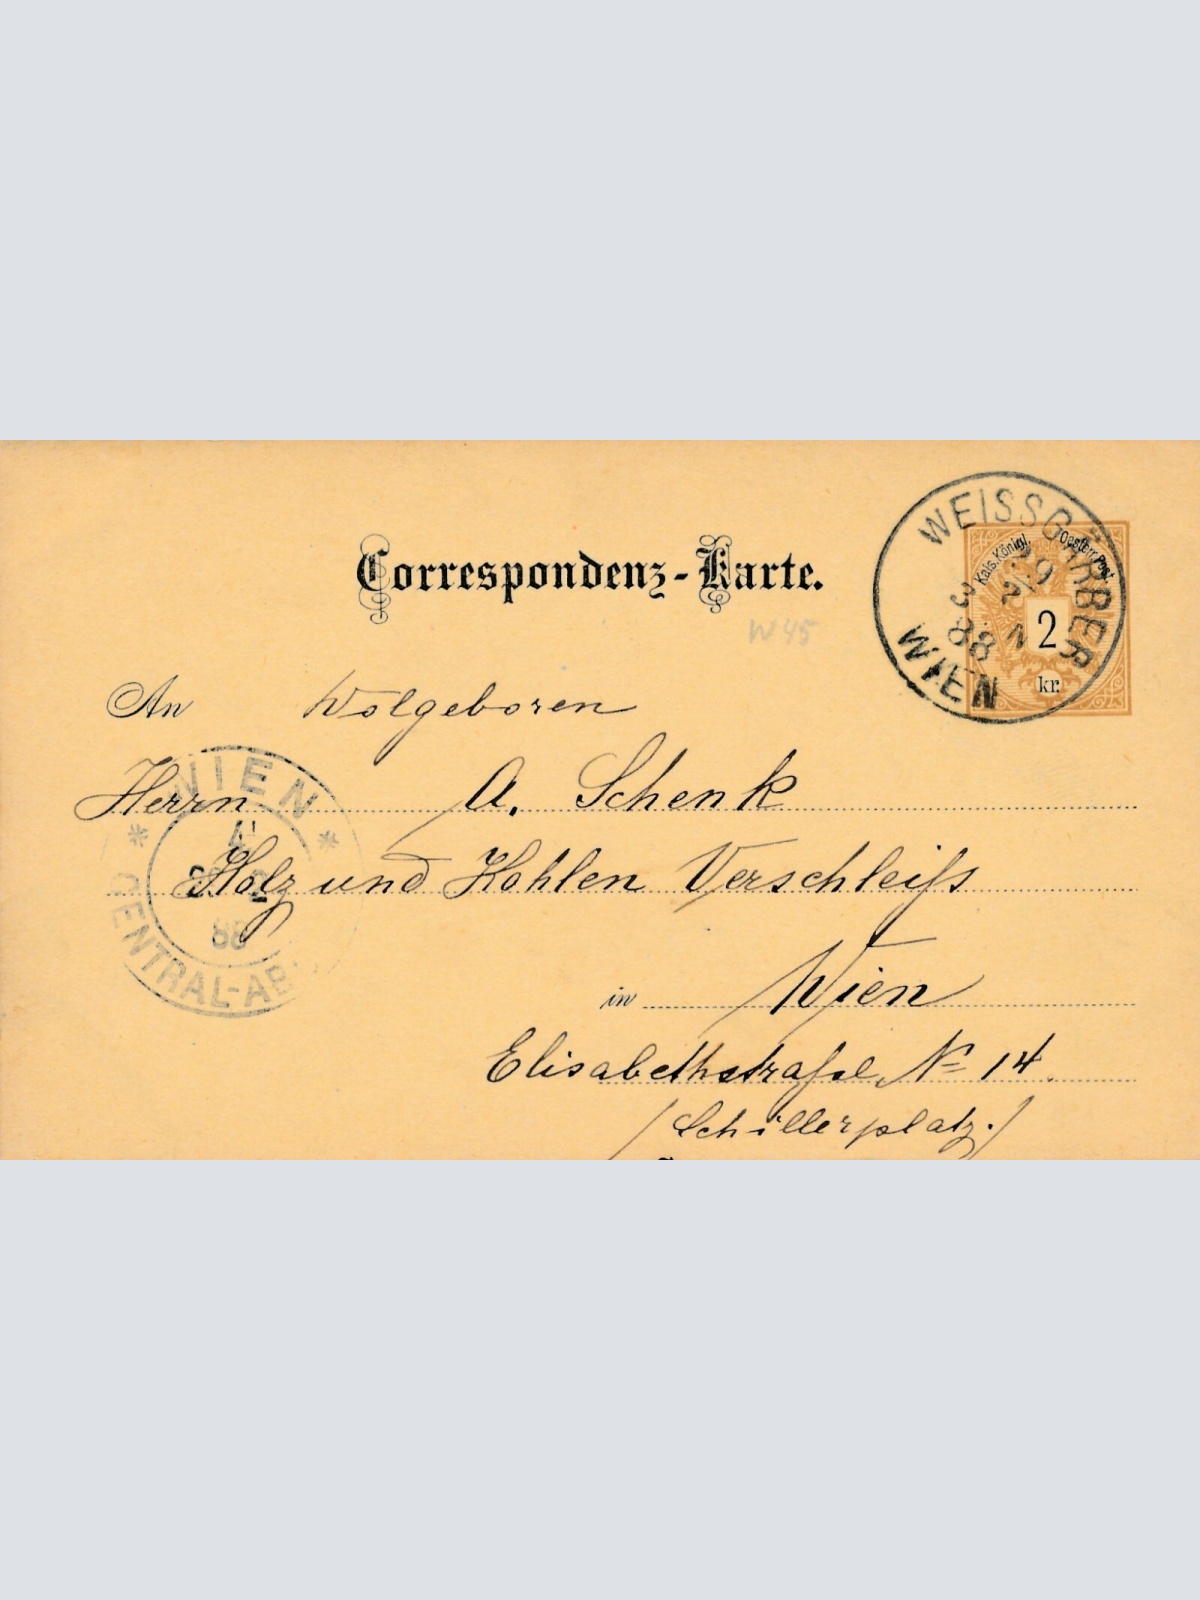 Correspondenz-Karte.
WEISSGÄRBER
29
2 N
3
88
WIEN
Kais. Königl. Oesterr. Post
2
kr.
W45
An Wolgeboren
Herrn A. Schenk
Holz und Kohlen Verschleiß
in Wien
Elisabethstraße N= 14.
/Schillerplatz./
WIEN
88
CENTRAL-AB